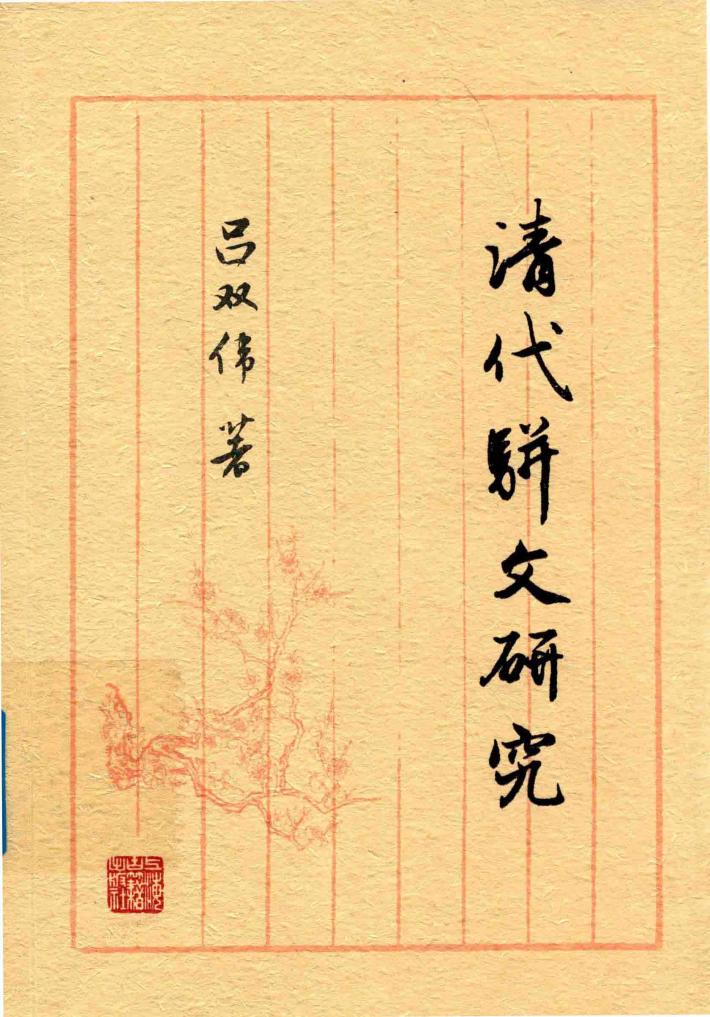 清代駢文研究
吕双伟 著
上海古籍出版社